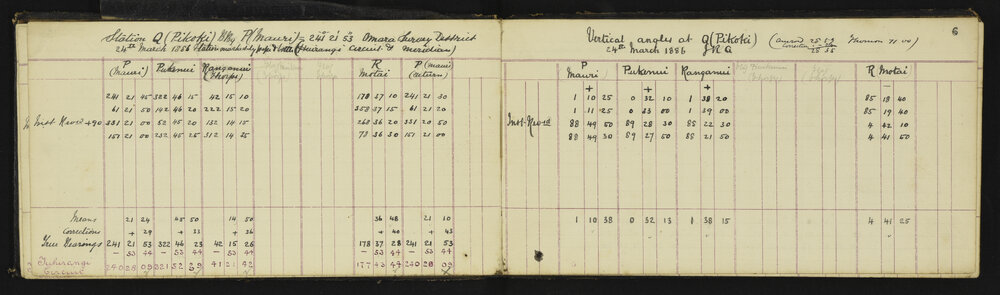 Station Q (Pikoki) P (Mauri) = 241 21 53 Omara Survey District
24th March 1886 Circuit & Meridian)
P (Mauri) Pukenui Ranganui (Thorps) R Motai P (Mauri) (return)
241 21 45 322 46 15 42 15 10 178 37 10 241 21 30
61 21 50 142 46 20 222 15 20 358 37 15 61 21 20
Inst Rev'ed +90 331 21 00 52 45 20 132 14 15 268 36 20 331 20 50
151 21 00 232 45 25 312 14 25 78 36 30 151 21 00
Means 21 24 45 50 14 50 36 48 21 10
Corrections + 29 + 33 + 36 + 40 + 43
True Bearings 241 21 53 322 46 23 42 15 26 178 37 28 241 21 53
– 53 44 – 53 44 – 53 44 – 53 44 – 53 44
Circuit 240 28 09 321 52 39 41 21 42 177 43 44 240 28 09
6
Vertical angles at Q (Pikoki)
24th March 1886 (Aneroid 25 59
Correction
25 55 Thermom 71 00)
P Mauri Pukenui Ranganui R Motai
+ + + –
1 10 25 0 32 10 1 38 20 85 18 40
1 11 25 0 33 00 1 39 00 85 19 40
Inst. Rev'ed 88 49 50 89 28 30 88 22 30 4 42 10
88 49 30 89 27 50 88 21 50 4 41 50
1 10 38 0 32 13 1 38 15 4 41 25